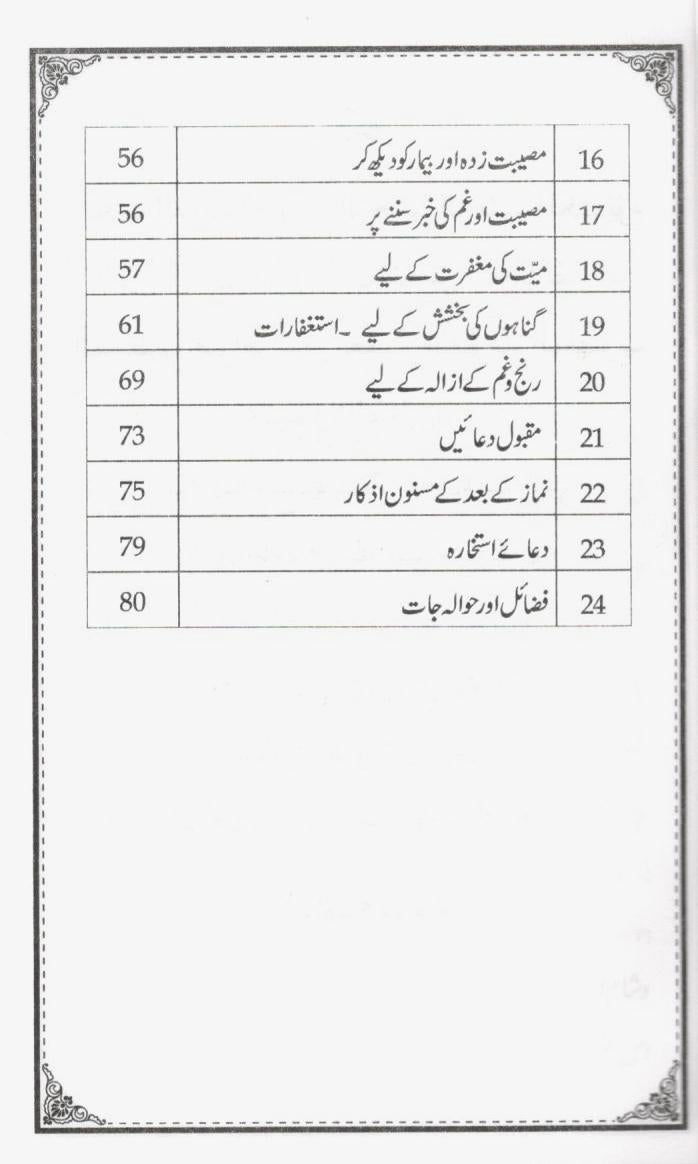 16 مصیبت زدہ اور بیمار کو دیکھ کر 56
17 مصیبت اور غم کی خبر سننے پر 56
18 میّت کی مغفرت کے لیے 57
19 گناہوں کی بخشش کے لیے ۔استغفارات 61
20 رنج و غم کے ازالہ کے لیے 69
21 مقبول دعائیں 73
22 نماز کے بعد کے مسنون اذکار 75
23 دعائے استخارہ 79
24 فضائل اور حوالہ جات 80